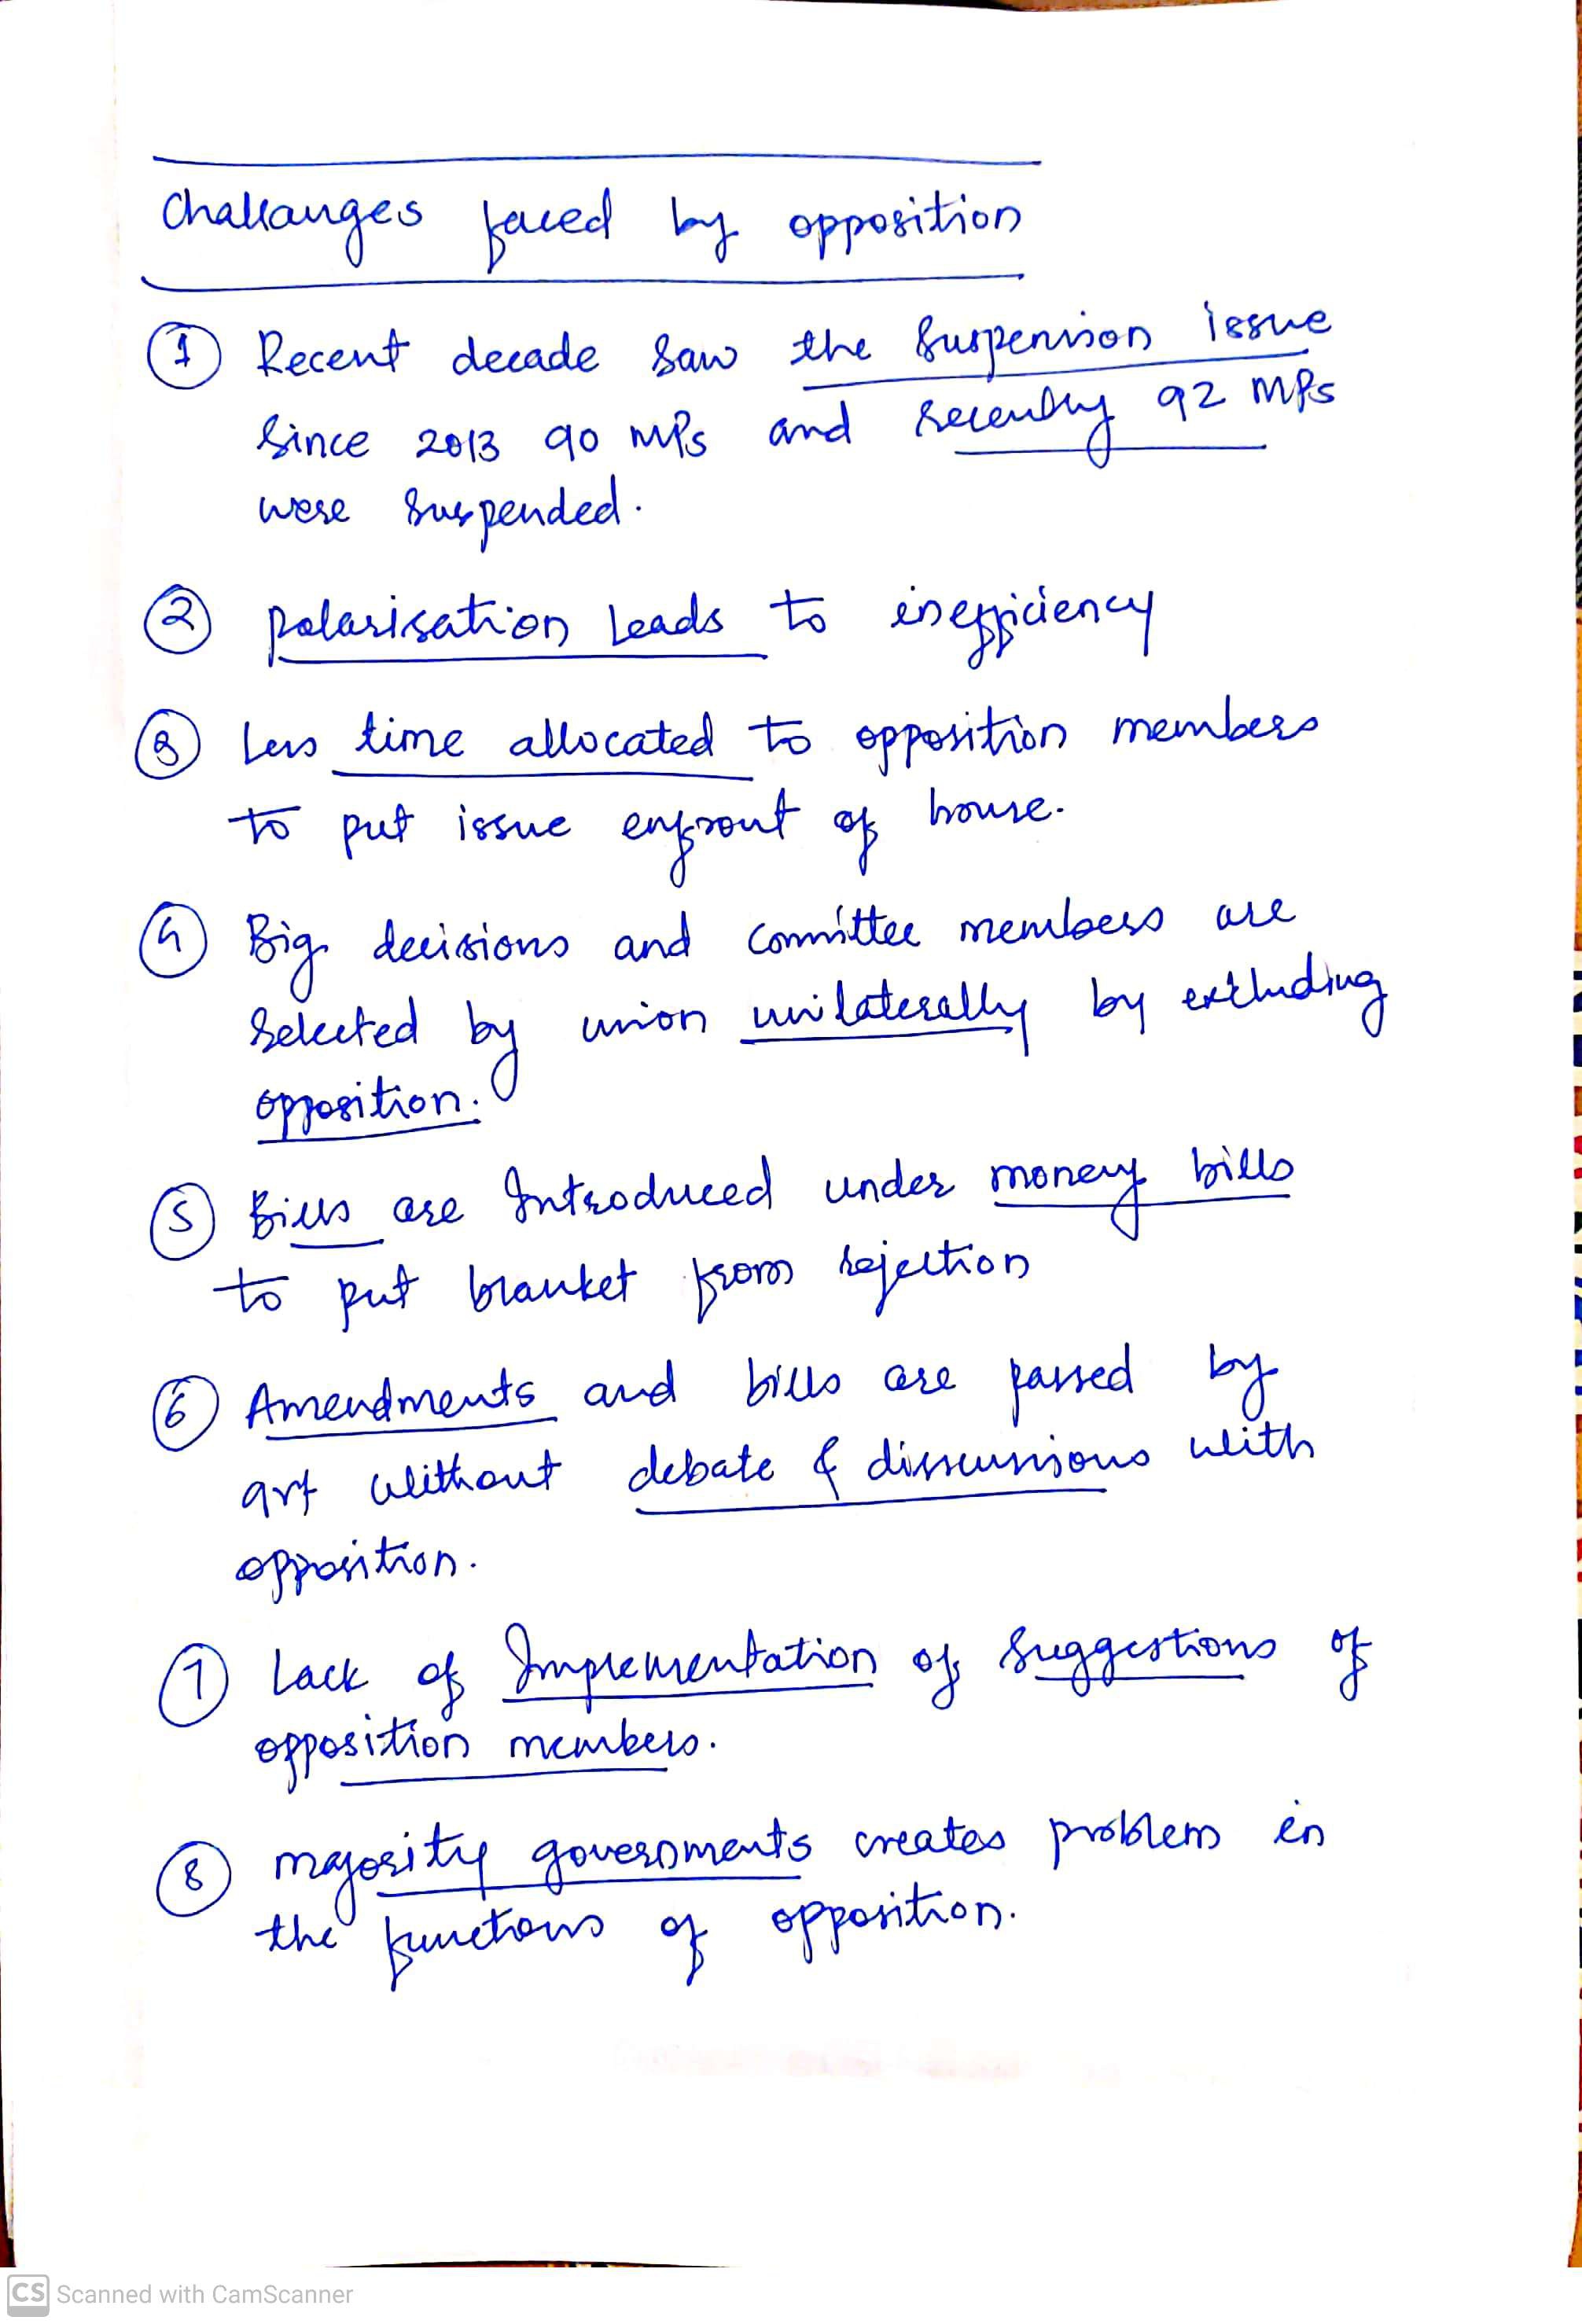 Challanges faced by opposition
1 Recent decade saw the suspension issue
since 2013 90 MPs and recently 92 MPs
were suspended.
2 polarisation leads to inefficiency
3 Less time allocated to opposition members
to put issue enfront of house.
4 Big decisions and committee members are
selected by union unilaterally by excluding
opposition.
5 Bills are Introduced under money bills
to put blanket from rejection
6 Amendments and bills are passed by
govt without debate & discussions with
opposition.
7 Lack of Implementation of suggestions of
opposition members.
8 majority governments creates problem in
the functions of opposition.
CS Scanned with CamScanner